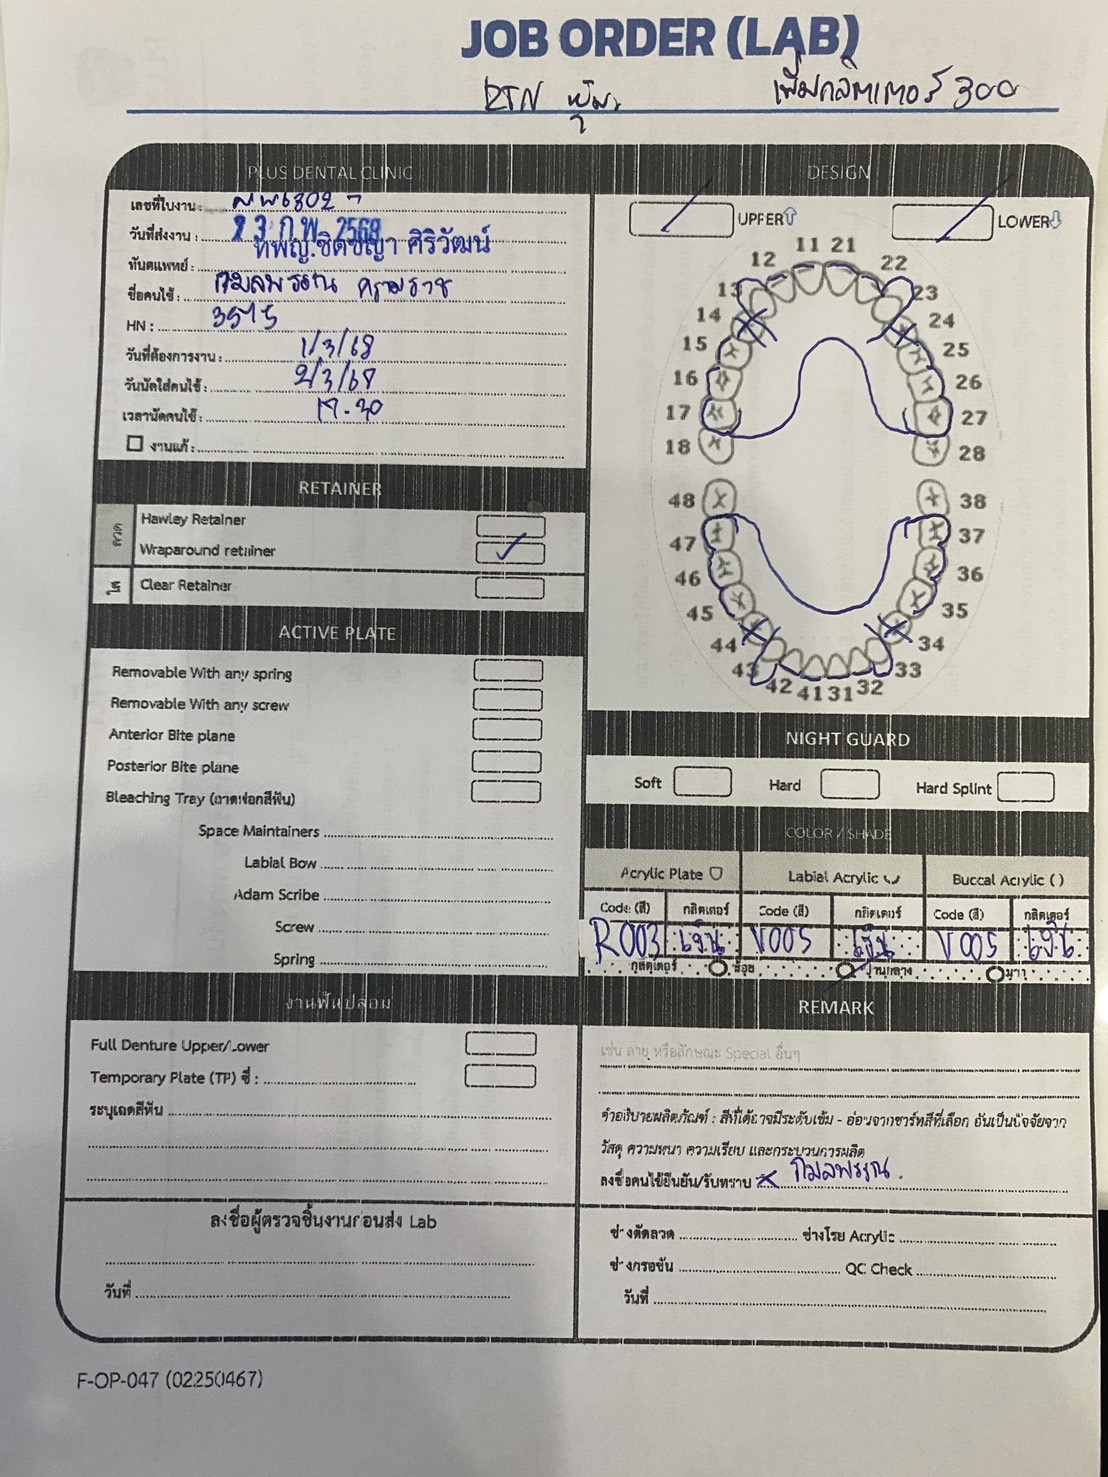 JOB ORDER (LAB)
RTN หุ้ม เพิ่มกลิตเตอร์ 300
PLUS DENTAL CLINIC
เลขที่ใบงาน :
วันที่ส่งงาน : 23 ก.พ. 2568
ทันตแพทย์ : ทพญ.ชิดชญา ศิริวัฒน์
ชื่อคนไข้ : กมลพรรณ
HN : 3515
วันที่ต้องการงาน : 1/3/68
วันนัดใส่คนไข้ : 2/3/68
เวลานัดคนไข้ : 17.30
งานแก้ :
RETAINER
ลวด
Hawley Retainer
Wraparound retainer ✓
ใส
Clear Retainer
ACTIVE PLATE
Removable With any spring
Removable With any screw
Anterior Bite plane
Posterior Bite plane
Bleaching Tray (ถาดฟอกสีฟัน)
Space Maintainers
Labial Bow
Adam Scribe
Screw
Spring
งานฟันปลอม
Full Denture Upper/Lower
Temporary Plate (TP) ซี่ :
ระบุเฉดสีฟัน
ลงชื่อผู้ตรวจชิ้นงานก่อนส่ง Lab
วันที่
DESIGN
UPPER LOWER
11 21
12 22
13 23
14 24
15 25
16 26
17 27
18 28
48 38
47 37
46 36
45 35
44 34
43 33
42 41 31 32
NIGHT GUARD
Soft Hard Hard Splint
COLOR / SHADE
Acrylic Plate Labial Acrylic Buccal Acrylic ( )
Code (สี) กลิตเตอร์ Code (สี) กลิตเตอร์ Code (สี) กลิตเตอร์
R003 เงิน V005 เงิน V005 เงิน
กลิตเตอร์ น้อย ปานกลาง มาก
REMARK
เช่น ลาย หรือลักษณะ Special อื่นๆ
คำอธิบายผลิตภัณฑ์ : สีที่ได้อาจมีระดับเข้ม - อ่อนจากชาร์ทสีที่เลือก อันเป็นปัจจัยจาก
วัสดุ ความหนา ความเรียบ และกระบวนการผลิต
ลงชื่อคนไข้ยืนยัน/รับทราบ x กมลพรรณ.
ช่างดัดลวด ช่างโรย Acrylic
ช่างกรอขัด QC Check
วันที่
F-OP-047 (02250467)